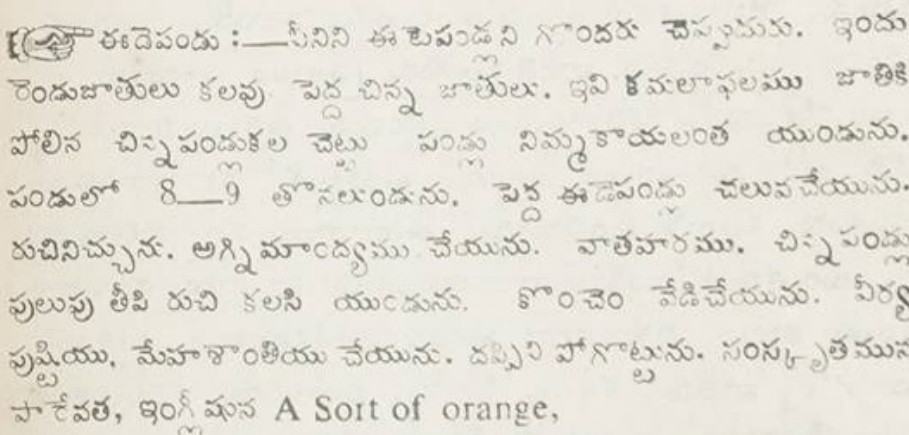 ఈదెపండు :—వీనిని ఈ టెపండ్లని గొందరు చెప్పుదురు. ఇందు
రెండుజాతులు కలవు పెద్ద చిన్న జాతులు. ఇవి కమలాఫలము జాతికి
పోలిన చిన్నపండ్లుకల చెట్టు పండ్లు నిమ్మకాయలంత యుండును.
పండులో 8—9 తొనలుండును. పెద్ద ఈడెపండ్లు చలువచేయును.
రుచినిచ్చును. అగ్నిమాంద్యము చేయును. వాతహరము. చిన్నపండ్లు
పులుపు తీపి రుచి కలసి యుండును. కొంచెం వేడిచేయును. వీర్య
పుష్టియు, మేహశాంతియు చేయును. దప్పిని పోగొట్టును. సంస్కృతమున
పారేవత, ఇంగ్లీషున A Sort of orange,